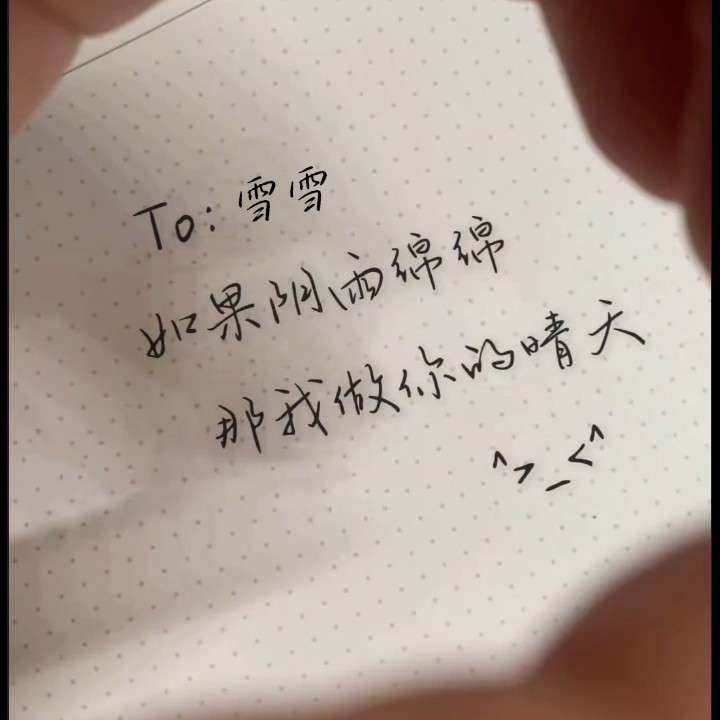 To: 雪雪
如果阴雨绵绵
那我做你的晴天
^>_<^